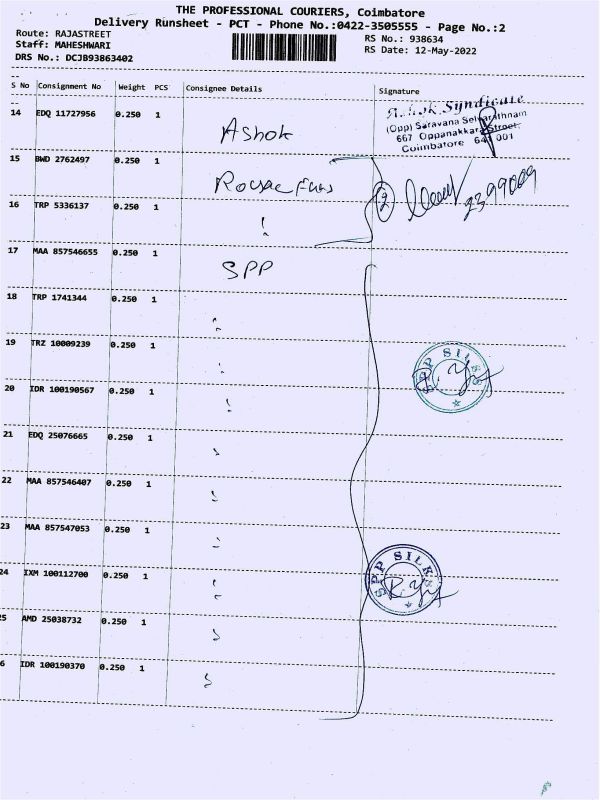 THE PROFESSIONAL COURIERS, Coimbatore
Delivery Runsheet - PCT - Phone No.:0422-3505555 - Page No.:2
Route: RAJASTREET
Staff: MAHESHWARI
DRS No.: DCJB93863402
RS No.: 938634
RS Date: 12-May-2022
S No Consignment No Weight PCS Consignee Details Signature
14 EDQ 11727956 0.250 1 Ashok
Ashok Syndicate
(Opp) Saravana Selvarathnam
667 Oppanakkara Street.
Coimbatore 641 001
15 BWD 2762497 0.250 1
2
16 TRP 5336137 0.250 1
17 MAA 857546655 0.250 1 SPP
18 TRP 1741344 0.250 1
19 TRZ 10009239 0.250 1
SPP SILKS
20 IDR 100190567 0.250 1
21 EDQ 25076665 0.250 1
22 MAA 857546407 0.250 1
23 MAA 857547053 0.250 1
24 IXM 100112700 0.250 1
SPP SILKS
25 AMD 25038732 0.250 1
6 IDR 100190370 0.250 1